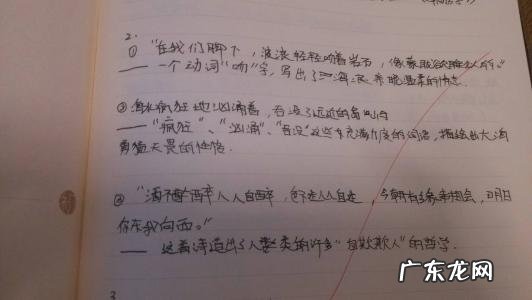 2.
① "在我们脚下，波浪轻轻吻着岩石，像朦胧欲睡似的。"
—— 一个动词"吻"字，写出了海浪温柔的
② 海水疯狂地汹涌着，吞没了远近的岛屿
—— "疯狂"、"汹涌"、"吞没"这些充满力度的词语，描绘出大海
勇猛无畏的性格。
③ "酒不醉人人自醉，色不迷人人自迷，今朝有缘来相会，明日
你东我向西。"
—— 这首诗道出了人类的许多"自欺欺人"的哲学。
3.
广东龙网